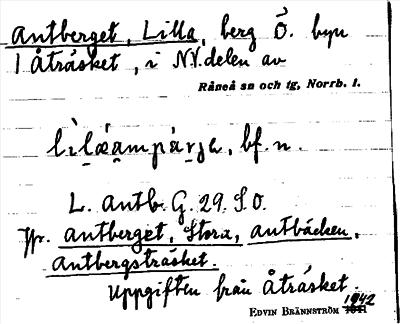 Antberget, Lilla, berg Ö. byn
1 Åträsket, i NV. delen av
Råneå sn och tg, Norrb. l.
bf. n.
L. Antb. G. 29. S.O.
Jfr. Antberget, Stora, Antbäcken,
Antbergsträsket.
Uppgiften från Åträsket.
EDVIN BRÄNNSTRÖM 1942